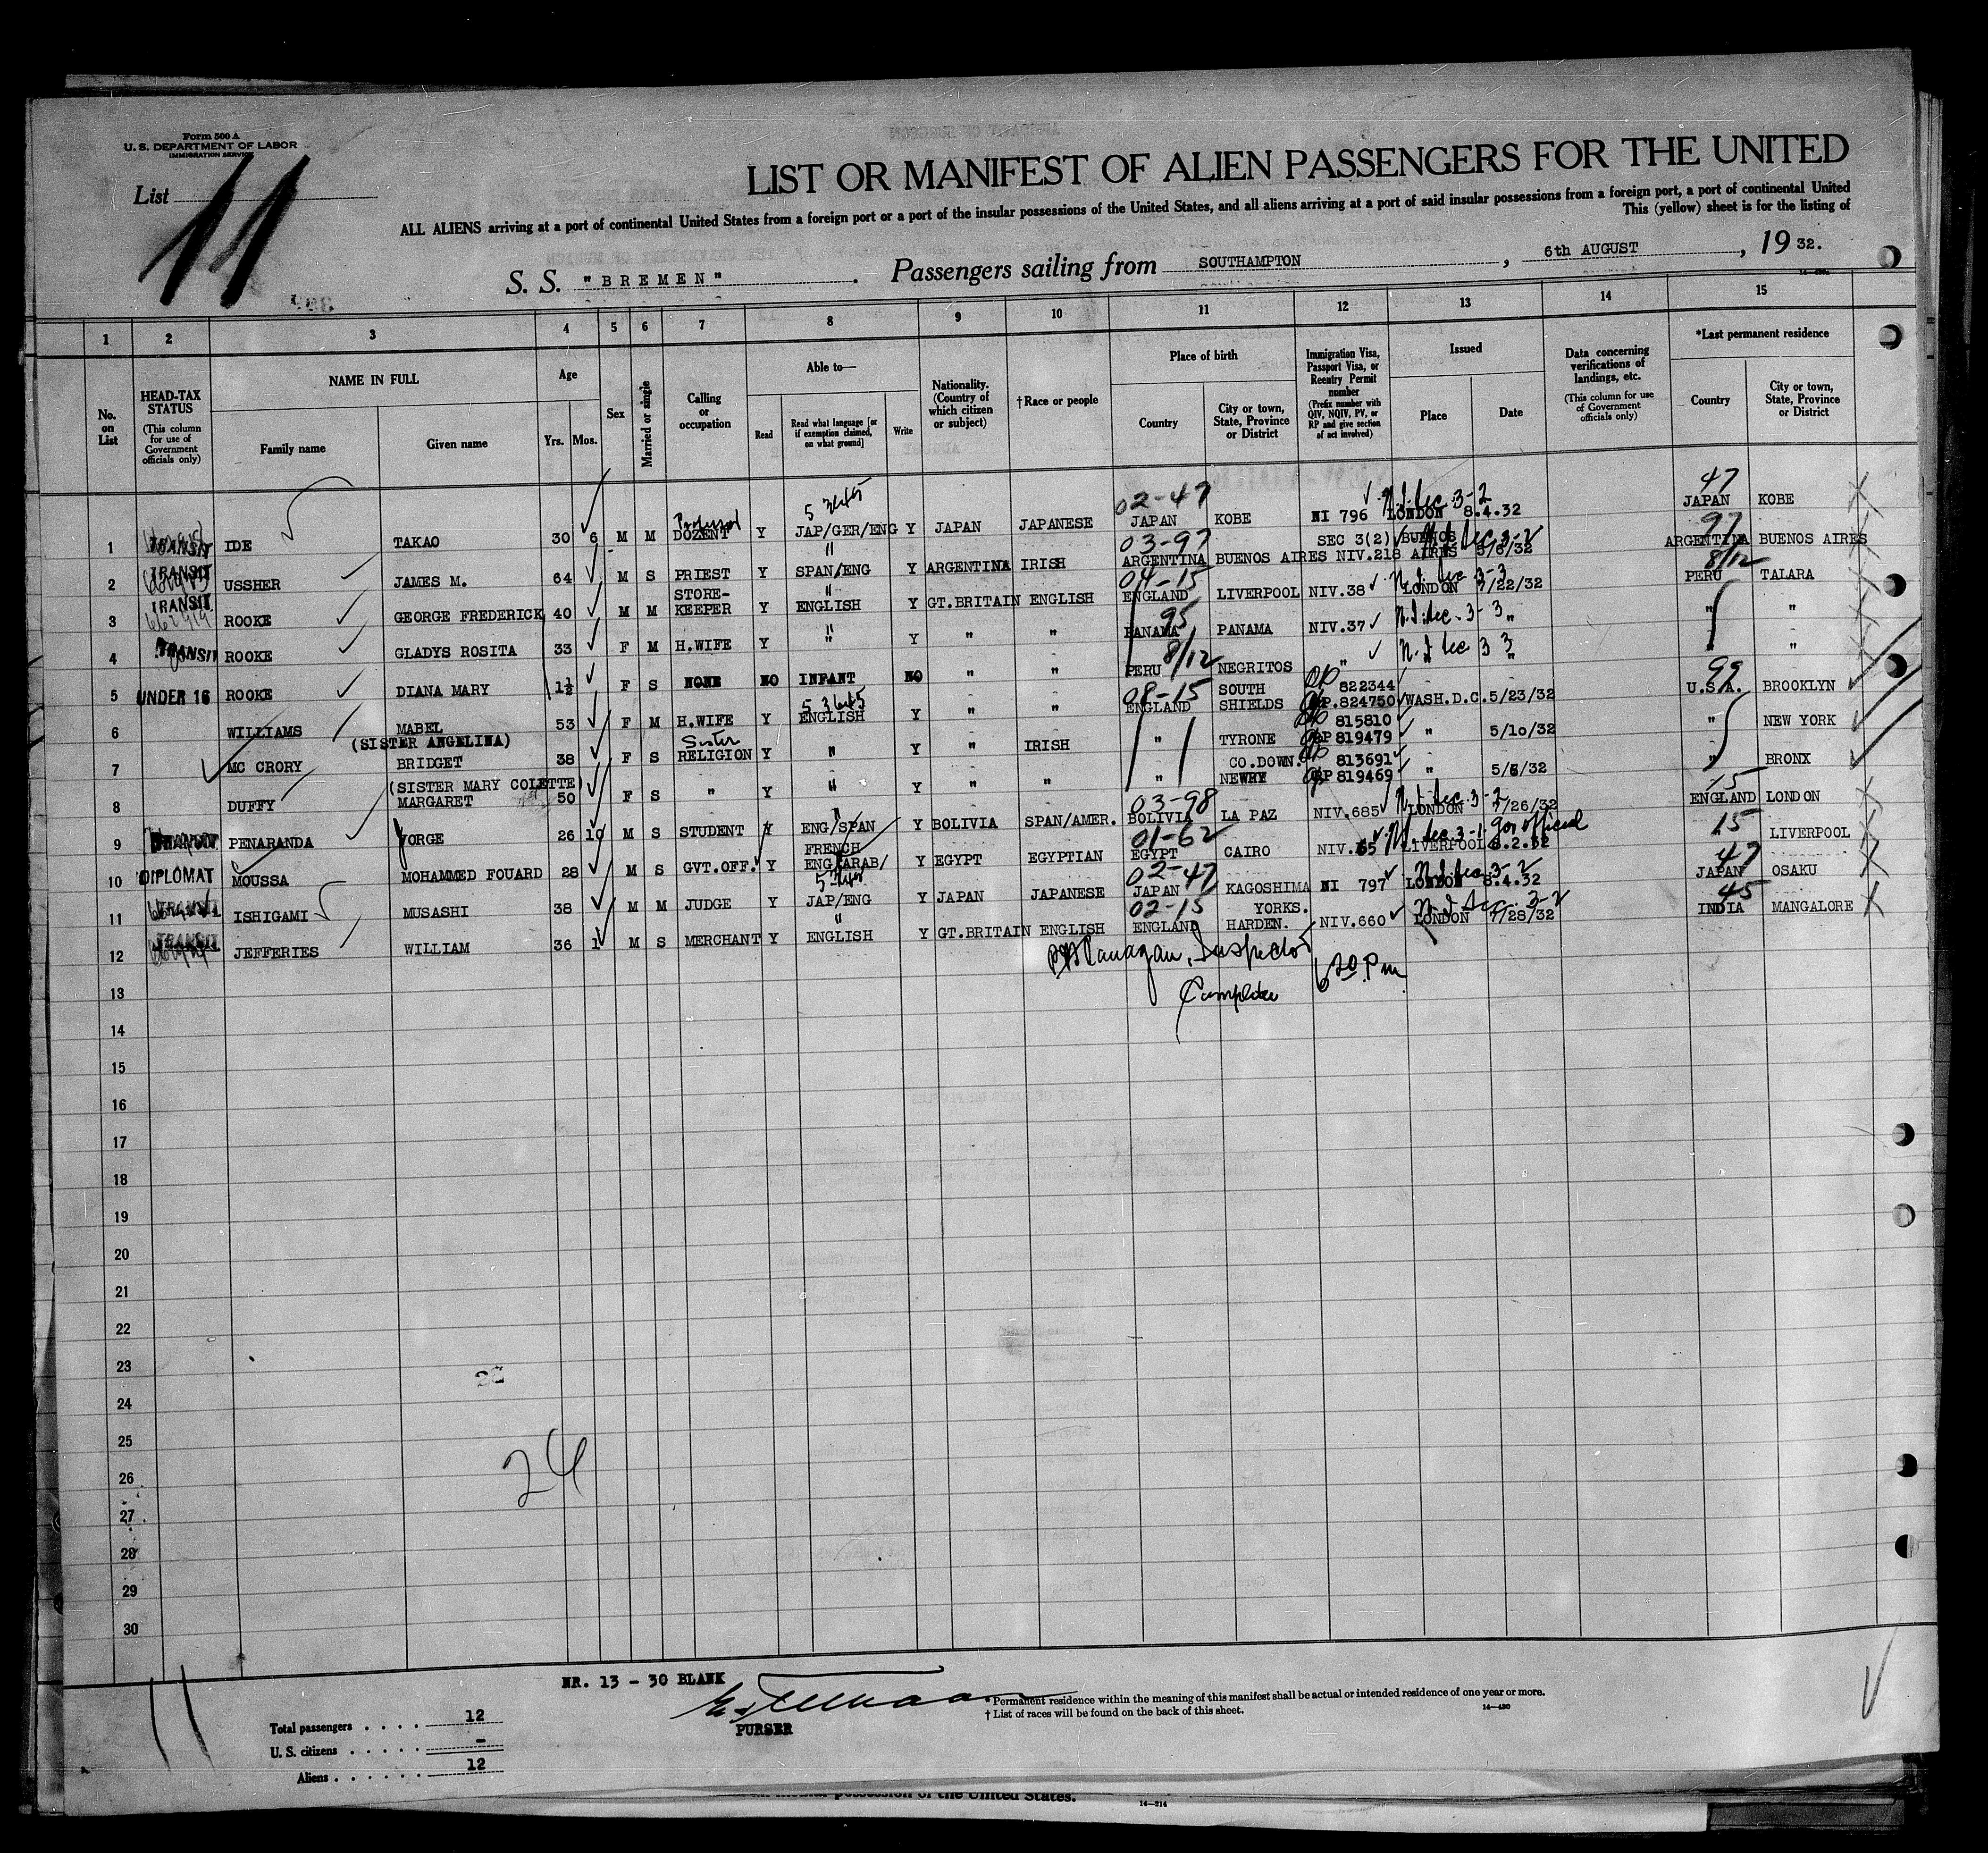 Form 500 A
U. S. DEPARTMENT OF LABOR
IMMIGRATION SERVICE
List 11
LIST OR MANIFEST OF ALIEN PASSENGERS FOR THE UNITED
ALL ALIENS arriving at a port of continental United States from a foreign port or a port of the insular possessions of the United States, and all aliens arriving at a port of said insular possessions from a foreign port, a port of continental United
This (yellow) sheet is for the listing of
S. S. "BREMEN" . Passengers sailing from SOUTHAMPTON , 6th AUGUST , 19 32.
1 2 3 4 5 6 7 8 9 10 11 12 13 14 15
No. on List
HEAD-TAX STATUS
(This column for use of Government officials only)
NAME IN FULL
Family name
Given name
Age
Yrs. Mos.
Sex
Married or single
Calling or occupation
Able to—
Read
Read what language [or if exemption claimed, on what ground]
Write
Nationality. (Country of which citizen or subject)
†Race or people
Place of birth
Country
City or town, State, Province or District
Immigration Visa, Passport Visa, or Reentry Permit number
(Prefix number with QIV, NQIV, PV, or RP and give section of act involved)
Issued
Place
Date
Data concerning verifications of landings, etc.
(This column for use of Government officials only)
*Last permanent residence
Country
City or town, State, Province or District
02-47 47
1 TRANSIT IDE TAKAO 30 6 M M DOZENT Y JAP/GER/ENG Y JAPAN JAPANESE JAPAN KOBE NI 796 LONDON 8.4.32 JAPAN KOBE
03-97 SEC 3(2) BUENOS 97
2 TRANSIT USSHER JAMES M. 64 M S PRIEST Y SPAN/ENG Y ARGENTINA IRISH ARGENTINA BUENOS AIRES NIV.218 AIRES ARGENTINA BUENOS AIRES
04-15 8/12
3 TRANSIT ROOKE GEORGE FREDERICK 40 M M STORE-KEEPER Y ENGLISH Y GT.BRITAIN ENGLISH ENGLAND LIVERPOOL NIV.38 LONDON 7/22/32 PERU TALARA
95
4 TRANSIT ROOKE GLADYS ROSITA 33 F M H.WIFE Y " Y " " PANAMA PANAMA NIV.37 " " "
8/12
5 UNDER 16 ROOKE DIANA MARY 1½ F S NONE NO INFANT NO " " PERU NEGRITOS " " " "
08-15 822344 99
6 WILLIAMS MABEL 53 F M H.WIFE Y ENGLISH Y " " ENGLAND SOUTH SHIELDS P.824750 WASH.D.C. 5/23/32 U.S.A. BROOKLYN
(SISTER ANGELINA) Sister 815810
7 MC CRORY BRIDGET 38 F S RELIGION Y " Y " IRISH " TYRONE P 819479 " 5/10/32 " NEW YORK
(SISTER MARY COLETTE) CO.DOWN. 813691
8 DUFFY MARGARET 50 F S " Y " Y " " " NEWRY P 819469 " 5/5/32 " BRONX
03-98 15
9 PENARANDA JORGE 26 10 M S STUDENT Y ENG/SPAN Y BOLIVIA SPAN/AMER. BOLIVIA LA PAZ NIV.685 LONDON 7/26/32 ENGLAND LONDON
FRENCH 01-62 15
10 DIPLOMAT MOUSSA MOHAMMED FOUARD 28 M S GVT.OFF. Y ENG/ARAB/ Y EGYPT EGYPTIAN EGYPT CAIRO NIV.65 LIVERPOOL 8.2.32 LIVERPOOL
02-47 47
11 TRANSIT ISHIGAMI MUSASHI 38 M M JUDGE Y JAP/ENG Y JAPAN JAPANESE JAPAN KAGOSHIMA NI 797 LONDON 8.4.32 JAPAN OSAKU
02-15 YORKS. 45
12 TRANSIT JEFFERIES WILLIAM 36 1 M S MERCHANT Y ENGLISH Y GT.BRITAIN ENGLISH ENGLAND HARDEN. NIV.660 LONDON 7/28/32 INDIA MANGALORE
Inspector
13
14
15
16
17
18
19
20
21
22
23
24
25
26
27
28
29
30
24
NR. 13 - 30 BLANK
PURSER
Total passengers . . . . 12
U. S. citizens . . . . . -
Aliens . . . . . . 12
*Permanent residence within the meaning of this manifest shall be actual or intended residence of one year or more.
† List of races will be found on the back of this sheet.
14—430
possession of the United States.
14—214